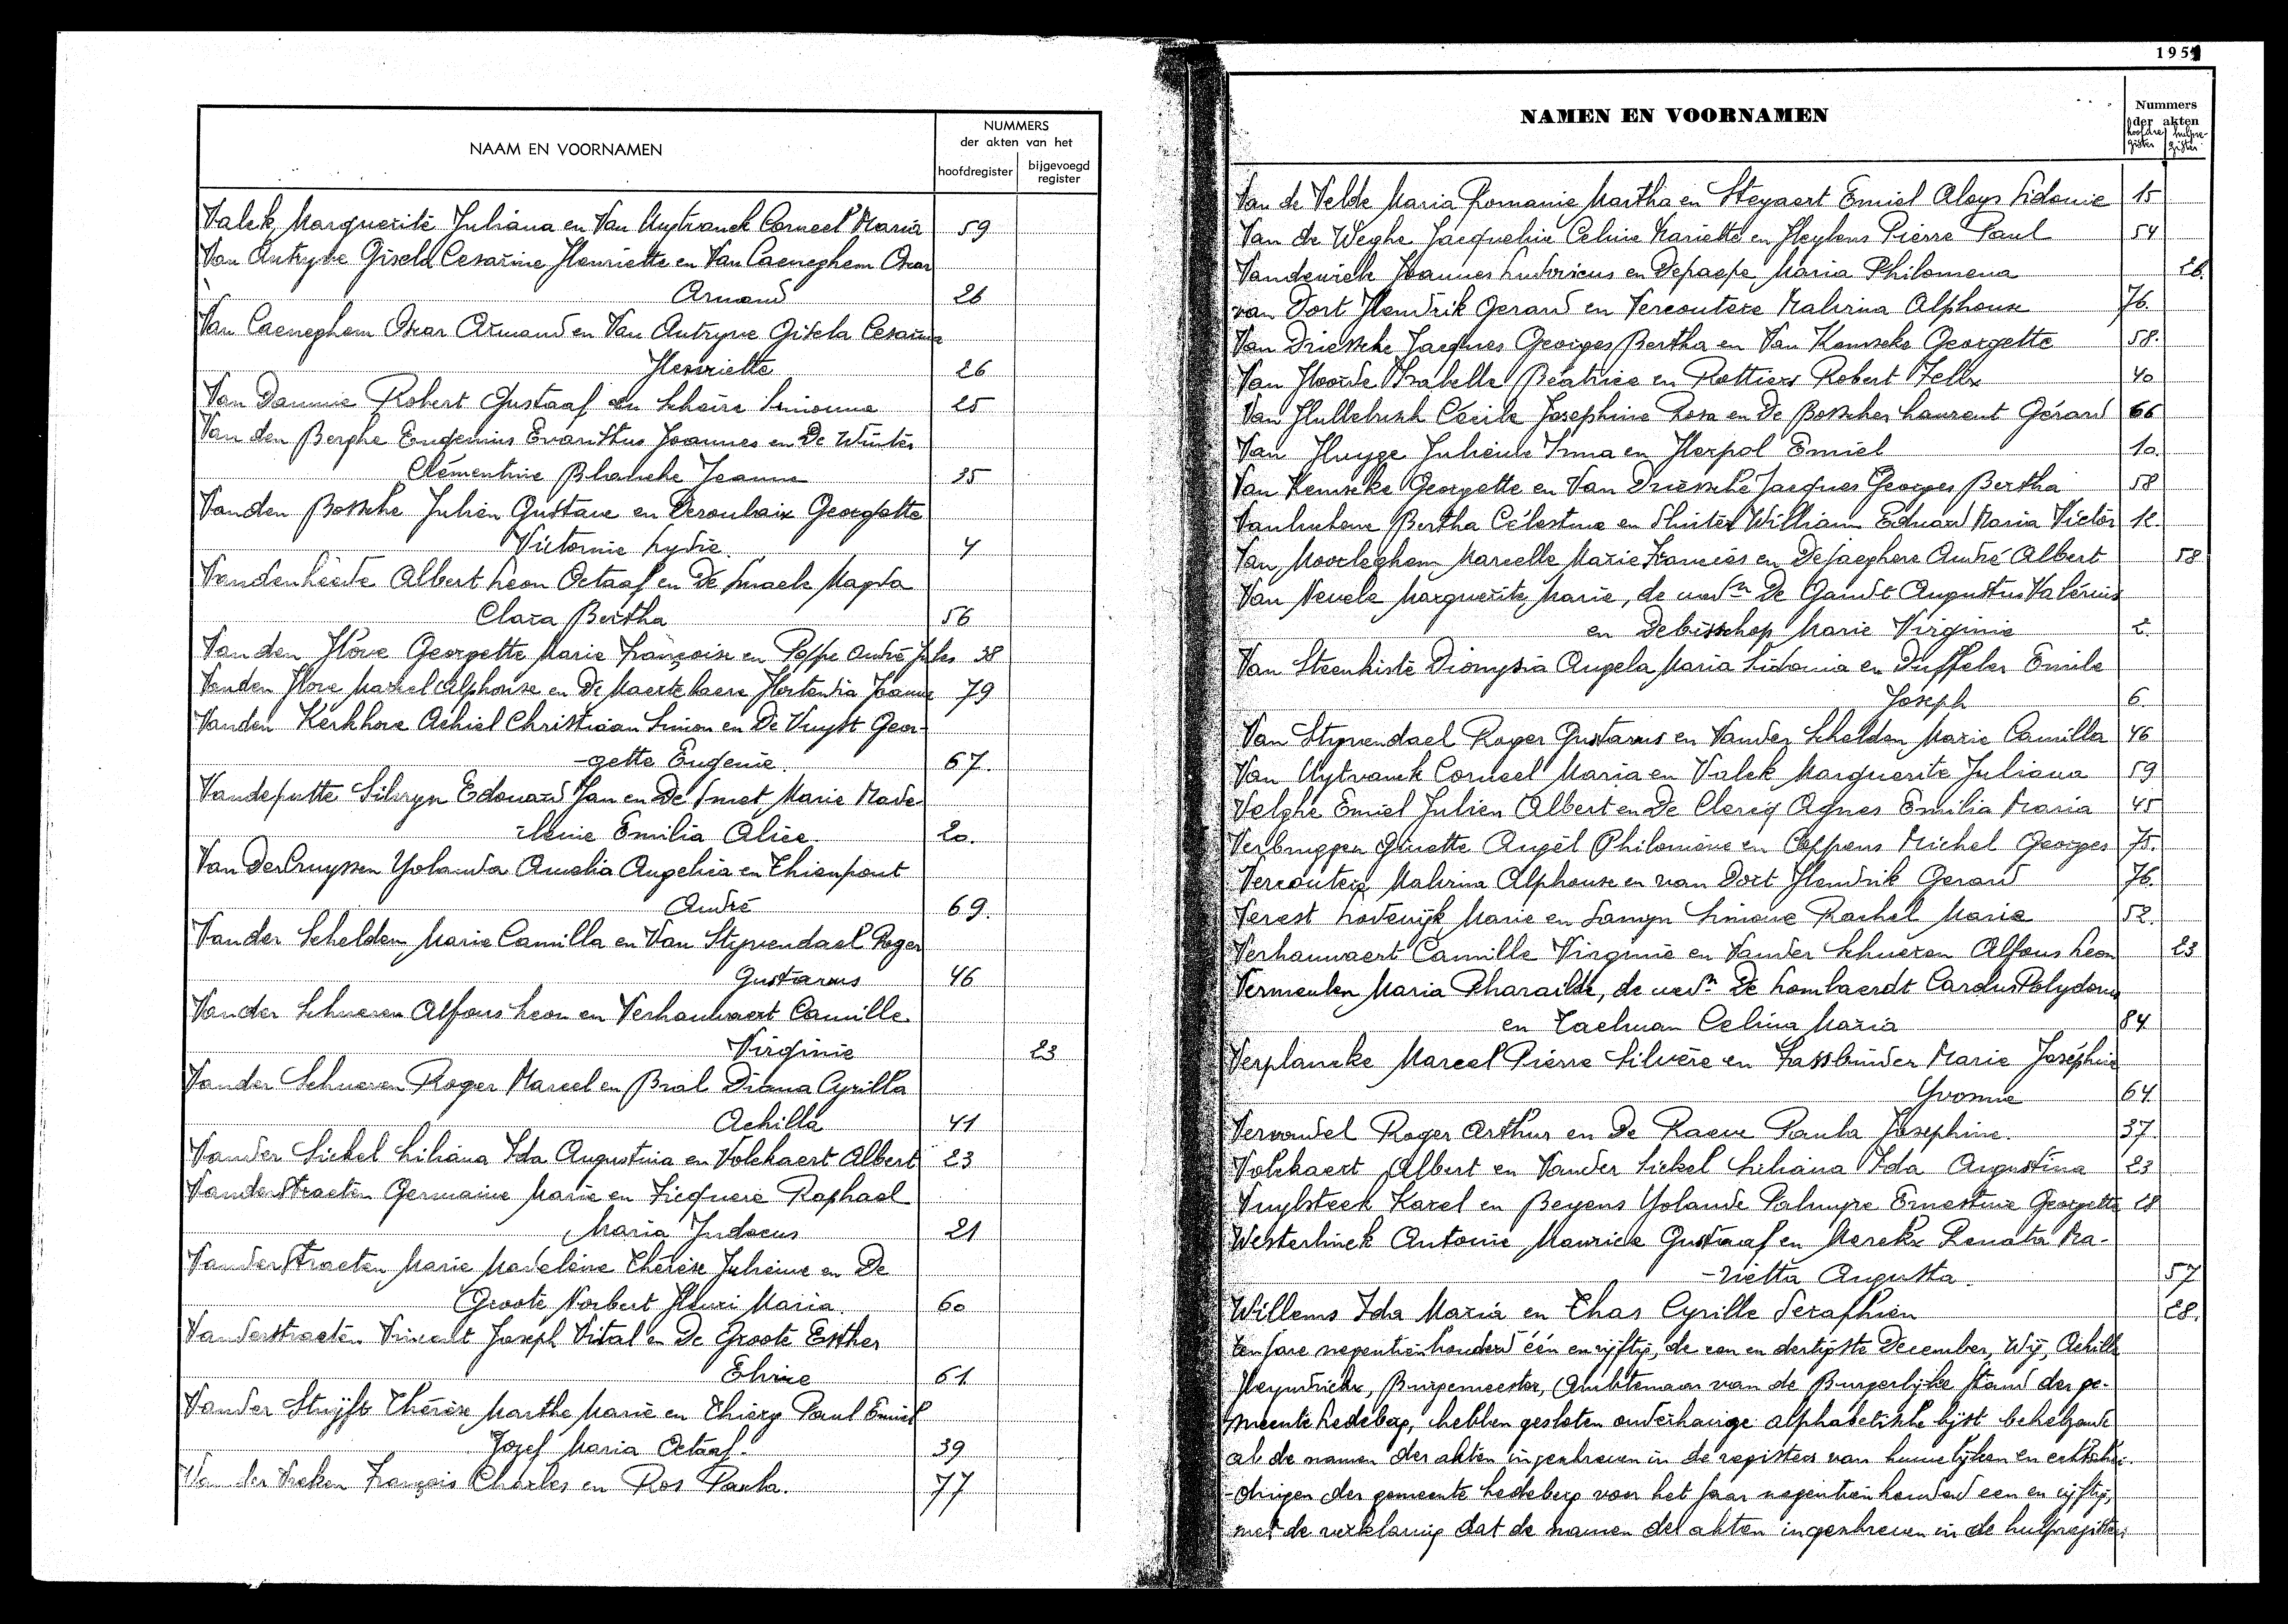 NAAM EN VOORNAMEN
NUMMERS
der akten van het
hoofdregister
bijgevoegd
register
Valck Marguerite Juliana en Van Uytvanck Corneel Maria 59
Van Autryve Gisela Cesarine Henriette en Van Caeneghem Oscar
Armand 26
Van Caeneghem Oscar Armand en Van Autryve Gisela Cesarine
Henriette 26
Van Damme Robert Gustaaf en Schoire Simonne 25
Van den Berghe Eugenius Evaristus Joannes en De Winter
Clémentine Blanche Jeanne 35
Vanden Bossche Julien Gustave en Deroubaix Georgette
Victornie Lydie 4
Vandenheede Albert Leon Octaaf en De Smaele Magda
Clara Bertha 56
Van den Hove Georgette Marie Françoise en Poppe André Jules 38
Vanden Hove Marcel Alphonse en De Maertelaere Hortensia Joanna 79
Vanden Kerkhove Achiel Christiaan Simon en De Vuyst Geor-
-gette Eugenie. 67.
Vandeputte Silveyn Edouard Jan en De Smet Marie Made-
-leine Emilia Alice. 20.
Van Der Cruyssen Yolanda Amelia Angelica en Thienpont
André 69.
Vander Schelden Marie Camilla en Van Styvendael Roger
Gustavus 46
Vander Schueren Alfons Leon en Verhauwaert Camille
Virginie 23
Vander Schueren Roger Marcel en Bral Diana Cyrilla
Achilla 41
Vander Sickel Liliana Ida Augustina en Volckaert Albert 23
Vanderstraeten Germaine Marie en Piequere Raphael
Maria Judocus 21
VanderStraeten Marie Madeleine Thérèse Julienne en De
Groote Norbert Henri Maria 60
Vanderstraeten Vincent Joseph Vital en De Groote Esther
Elvire 61
Vander Stuyft Thérèse Marthe Marie en Thiery Paul Emiel
Jozef Maria Octaaf. 39
Van der Vreken François Charles en Ros Paula. 77
1951
NAMEN EN VOORNAMEN
Nummers
der akten
hoofdre- hulpre-
gister gister
Van de Velde Maria Romanie Martha en Steyaert Emiel Aloys Sidonie 15
Van de Weghe Jacqueline Celine Mariette en Heylens Pierre Paul 54
Vandeurick Joannes Ludovicus en Depaepe Maria Philomena 26.
van Dort Hendrik Gerard en Vercoutere Malvina Alphonse 76.
Van Driessche Jacques Georges Bertha en Van Kemseke Georgette 58.
Van Hoorde Isabelle Béatrice en Rottiers Robert Felix 40
Van Hullebusch Cécile Josephine Rosa en De Bosscher Laurent Gérard 66
Van Huyge Julienne Irma en Herpol Emiel 10.
Van Kemseke Georgette en Van Driessche Jacques Georges Bertha 58
Bertha Célestine en Sluiter William Eduard Maria Victor 12.
Van Moorleghem Marcelle Marie Francies en Dejaeghere André Albert 58
Van Nevele Marguerite Marie, de uwdn De Gandt Augustus Valérius
en Debisschop Marie Virginie 2.
Van Steenkiste Dionysia Angela Maria Sidonia en Duffeler Emile
Joseph 6.
Van Styvendael Roger Gustavus en Vander Schelden Marie Camilla 46
Van Uytvanck Corneel Maria en Valck Marguerite Juliana 59
Velghe Emiel Julien Albert en De Clercq Agnes Emilia Maria 45
Verbruggen Ginette Angèl Philomène en Coppens Michel Georges 75.
Vercoutere Malvina Alphonse en van Dort Hendrik Gerard 76.
Verest Lodewijk Marie en Samyn Simone Rachel Marie 52.
Verhauwaert Camille Virginie en Vander Schueren Alfons Leon 23
Vermeulen Maria Pharaïlde, de uwdn De Lombaerdt Carolus Polydorus
en Taelman Celina Maria 84
Verplancke Marcel Pierre Silvère en Fassbinder Marie Joséphine
Yvonne 64.
Vervondel Roger Arthur en De Raeve Paula Josephine. 37.
Volckaert Albert en Vander Sickel Liliana Ida Augustina 23
Vuylsteek Karel en Beyens Yolande Palmyre Ernestine Georgette 28
Westerlinck Antonie Maurice Gustaaf en Merckx Renata Ma-
-rietta Augusta. 57
Willems Ida Maria en Thas Cyrille Seraphien 28.
Ten jare negentienhonderd één en vijftig, de een en dertigste December, Wij, Achille
Heyndrickx, Burgemeester, Ambtenaar van de Burgerlijke stand der ge-
meente Ledeberg, hebben gesloten onderhavige alphabetische lijst behelzende
al de namen der akten ingeschreven in de registers van huwelijken en echtschei-
-dingen der gemeente Ledeberg voor het jaar negentienhonderd een en vijftig,
met de verklaring dat de namen der akten ingeschreven in de hulpregisters